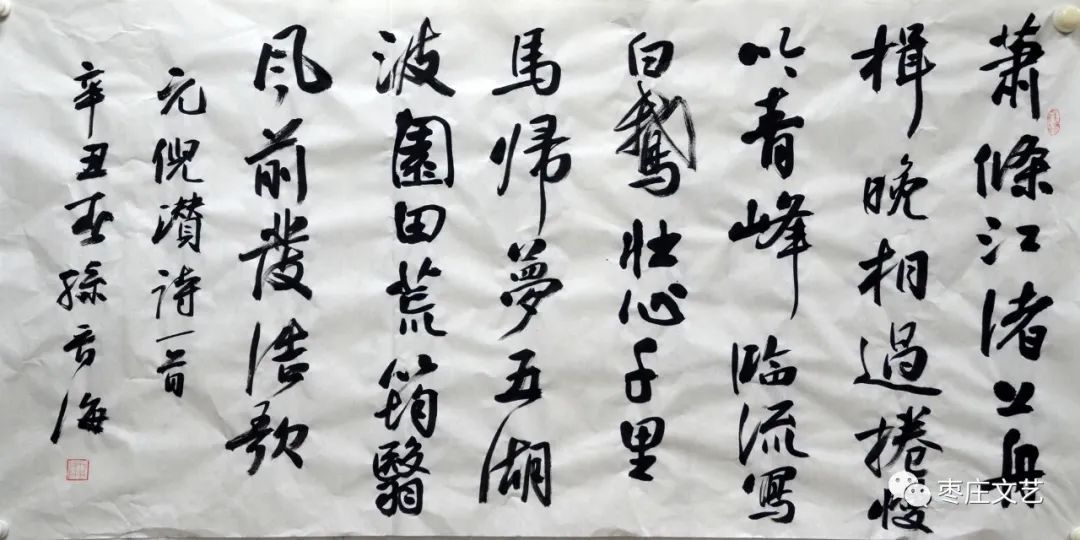 蕭條江渚上舟
楫晚相過捲幔
吟青峰臨流寫
白鵝壮心千里
馬帰夢五湖
波園田荒筠翳
风前發浩歌
元倪瓚诗一首
辛丑春孫海
枣庄文艺